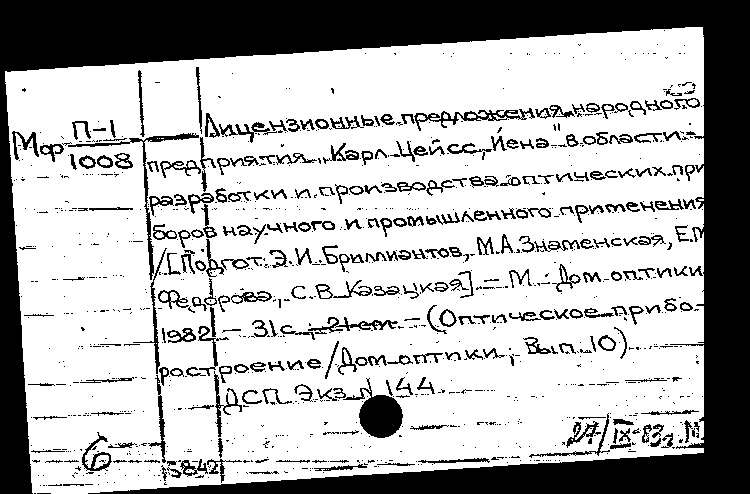 Мф П-1
1008
Лицензионные предложения народного
предприятия „Карл Цейсс, Йена" в области
разработки и производства оптических при
боров научного и промышленного применения
/[Подгот. Э.И. Бриллиантов, М.А. Знаменская, Е.М
Федорова, С.В. Казацкая]. – М.: Дом оптики
1982. – 31 с.; 21 см. – (Оптическое прибо-
ростроение / Дом оптики; Вып. 10).
ДСП Экз. N 144.
27/IX-83г. М
6
5842